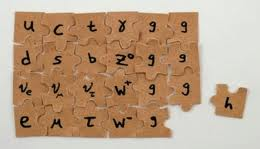 u c t γ g g
d s b Z⁰ g g
νe νμ ντ W⁺ g g
e μ τ W⁻ g
h